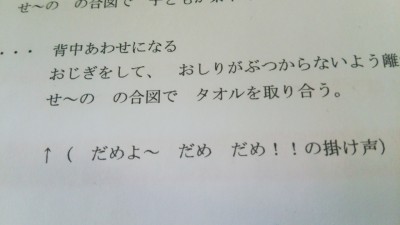 せ～の の合図で 子ども
・・・ 背中あわせになる
おじぎをして、 おしりがぶつからないよう離
せ～の の合図で タオルを取り合う。
↑ ( だめよ～ だめ だめ！！の掛け声)